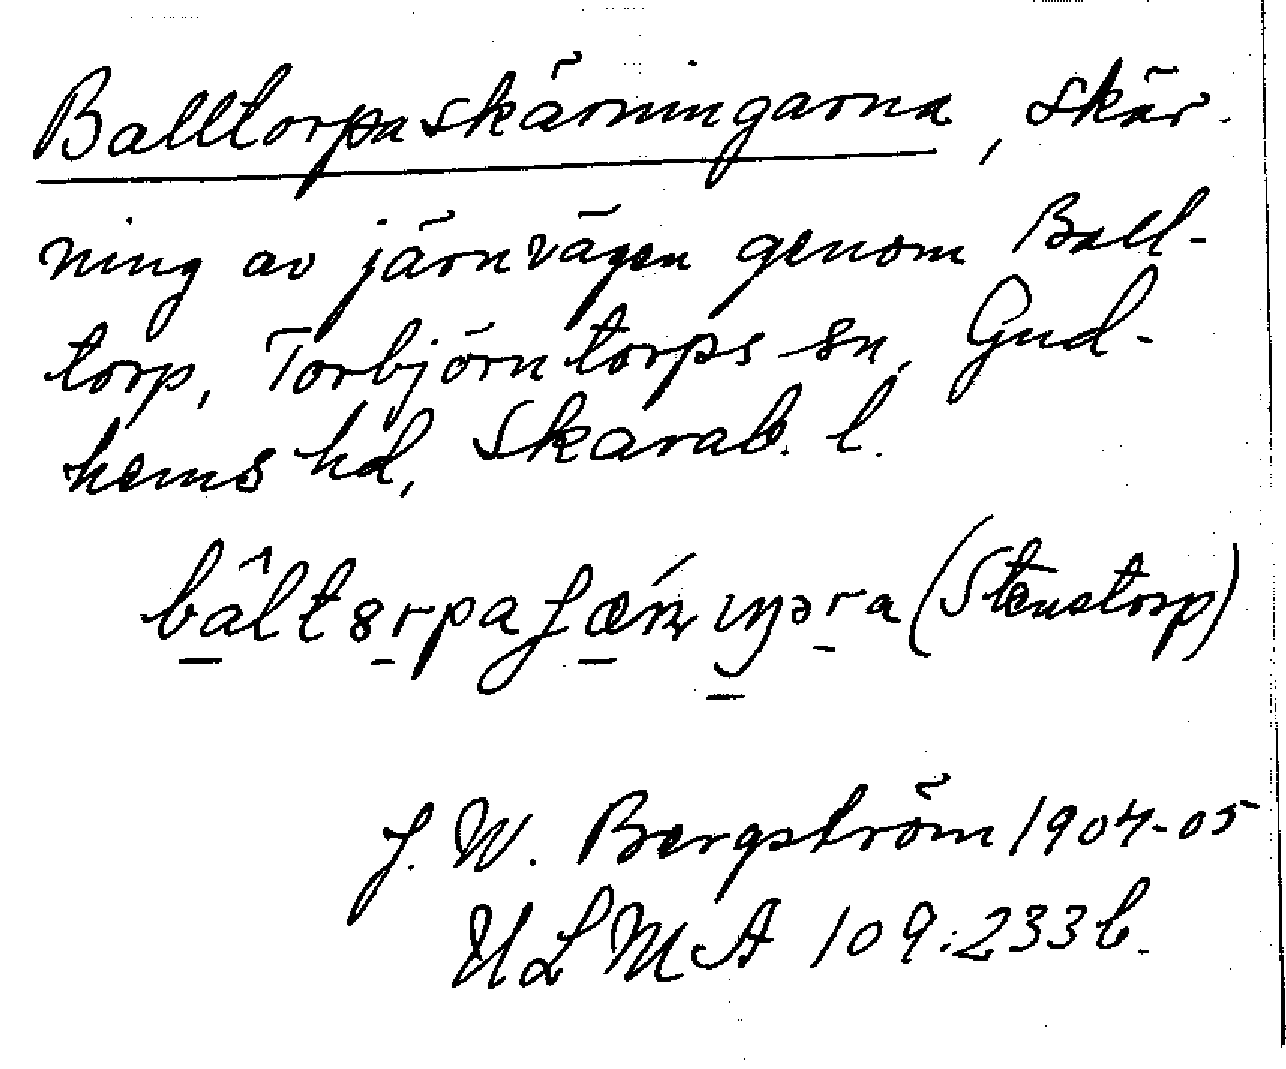 Balltorpaskärningarna, skär-
ning av järnvägen genom Ball-
torp, Torbjörntorps sn, Gud-
hems hd, Skarab. l.
(Stenstorp)
J. W. Bergström 1904-05
ULMA 109:233b.